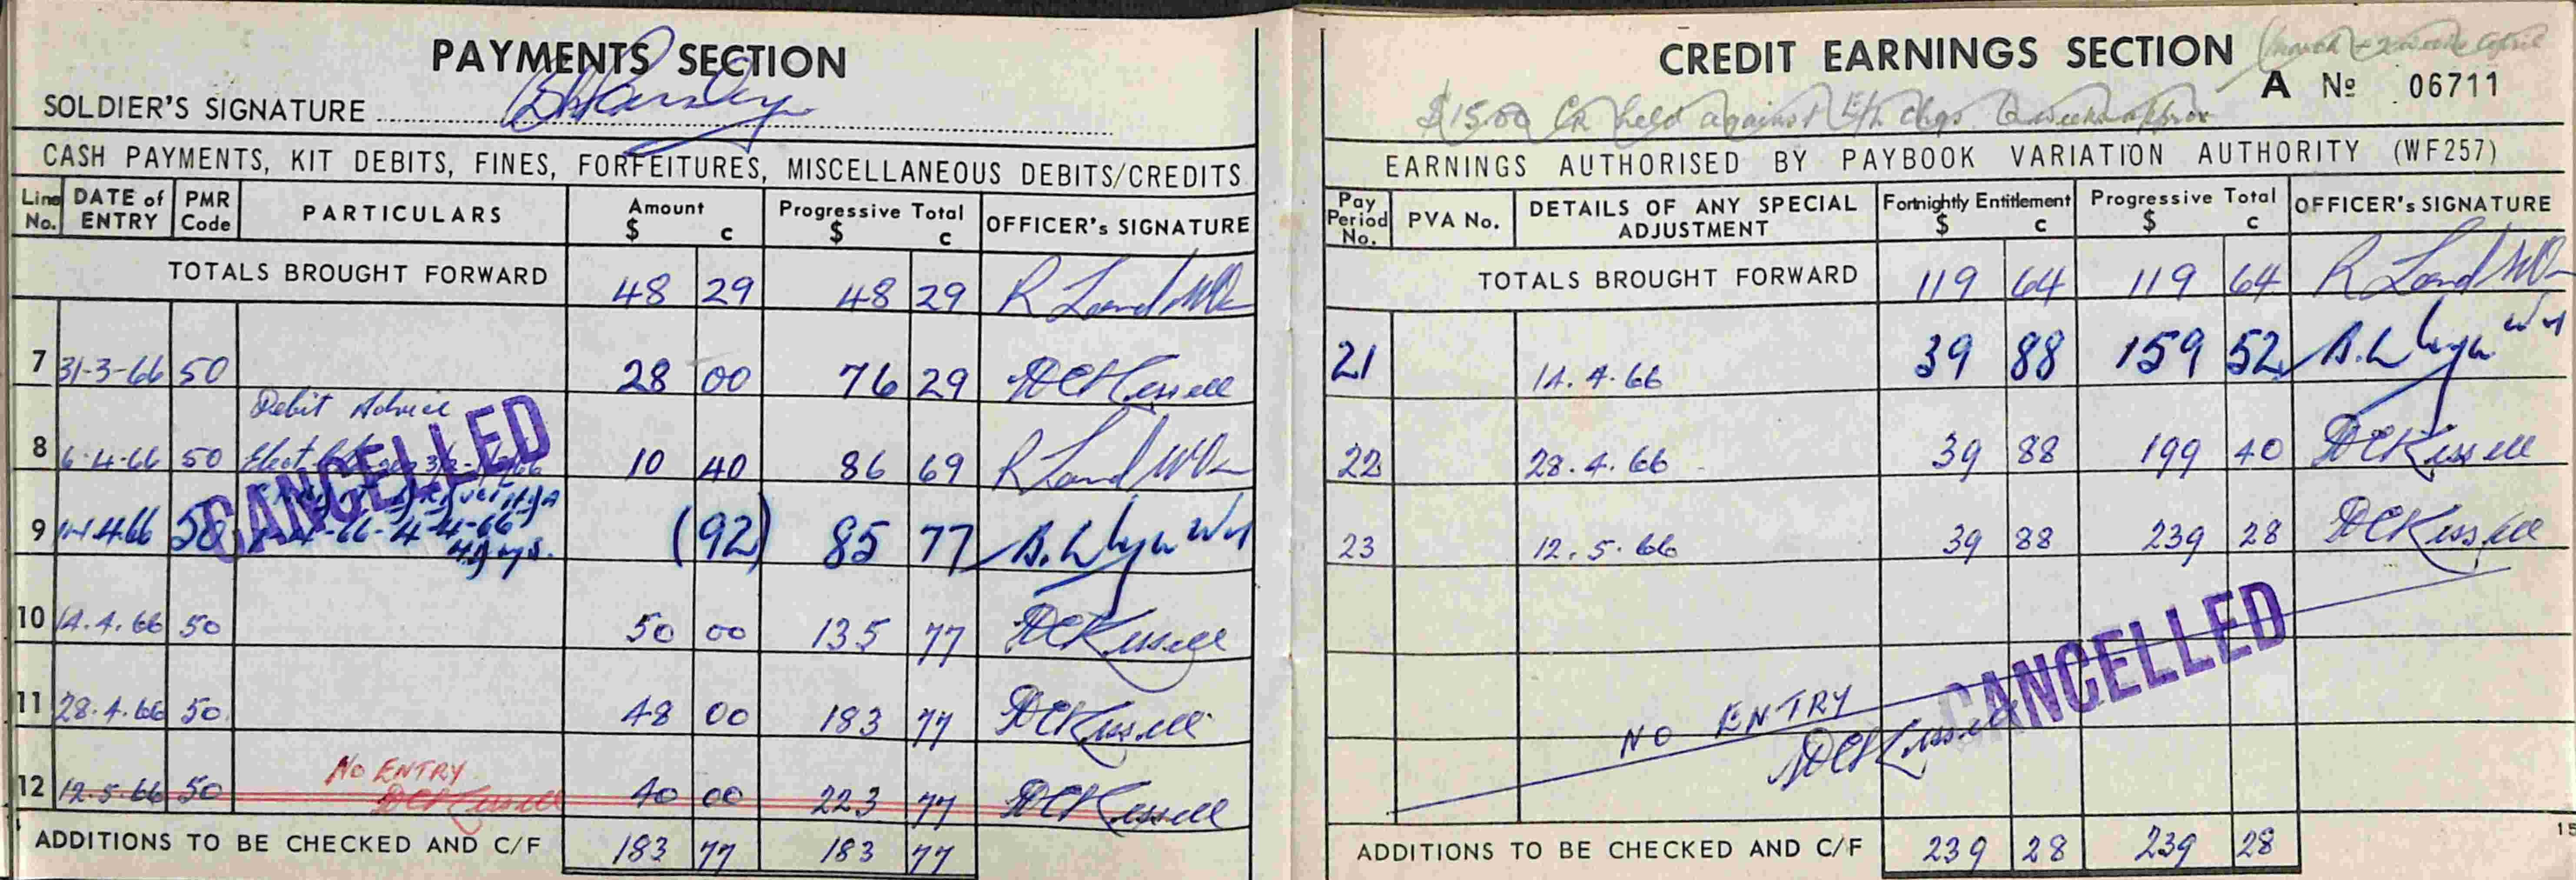 PAYMENTS SECTION
SOLDIER'S SIGNATURE
CASH PAYMENTS, KIT DEBITS, FINES, FORFEITURES, MISCELLANEOUS DEBITS/CREDITS
Line No. DATE of ENTRY PMR Code PARTICULARS Amount $ c Progressive Total $ c OFFICER's SIGNATURE
TOTALS BROUGHT FORWARD 48 29 48 29 R Land
7 31-3-66 50 28 00 76 29
Debit Advice
8 6-4-66 50 Elect 10 40 86 69 R Land
CANCELLED
9 50 -66-4-4-66 (92) 85 77
10 14.4.66 50 50 00 135 77
11 28.4.66 50 48 00 183 77
NO ENTRY
12 12.5.66 50 40 00 223 77
ADDITIONS TO BE CHECKED AND C/F 183 77 183 77
CREDIT EARNINGS SECTION
A No 06711
$15.00 CR held against
EARNINGS AUTHORISED BY PAYBOOK VARIATION AUTHORITY (WF257)
Pay Period No. PVA No. DETAILS OF ANY SPECIAL ADJUSTMENT Fortnightly Entitlement $ c Progressive Total $ c OFFICER's SIGNATURE
TOTALS BROUGHT FORWARD 119 64 119 64 R Land
21 14.4.66 39 88 159 52
22 28.4.66 39 88 199 40
23 12.5.66 39 88 239 28
CANCELLED
NO ENTRY
ADDITIONS TO BE CHECKED AND C/F 239 28 239 28
15